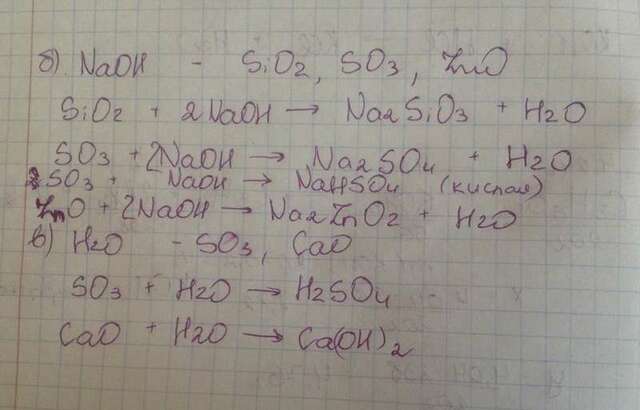 б) NaOH - SiO2, SO3, ZnO
SiO2 + 2NaOH → Na2SiO3 + H2O
SO3 + 2NaOH → Na2SO4 + H2O
SO3 + NaOH → NaHSO4 (кислая)
ZnO + 2NaOH → Na2ZnO2 + H2O
в) H2O - SO3, CaO
SO3 + H2O → H2SO4
CaO + H2O → Ca(OH)2